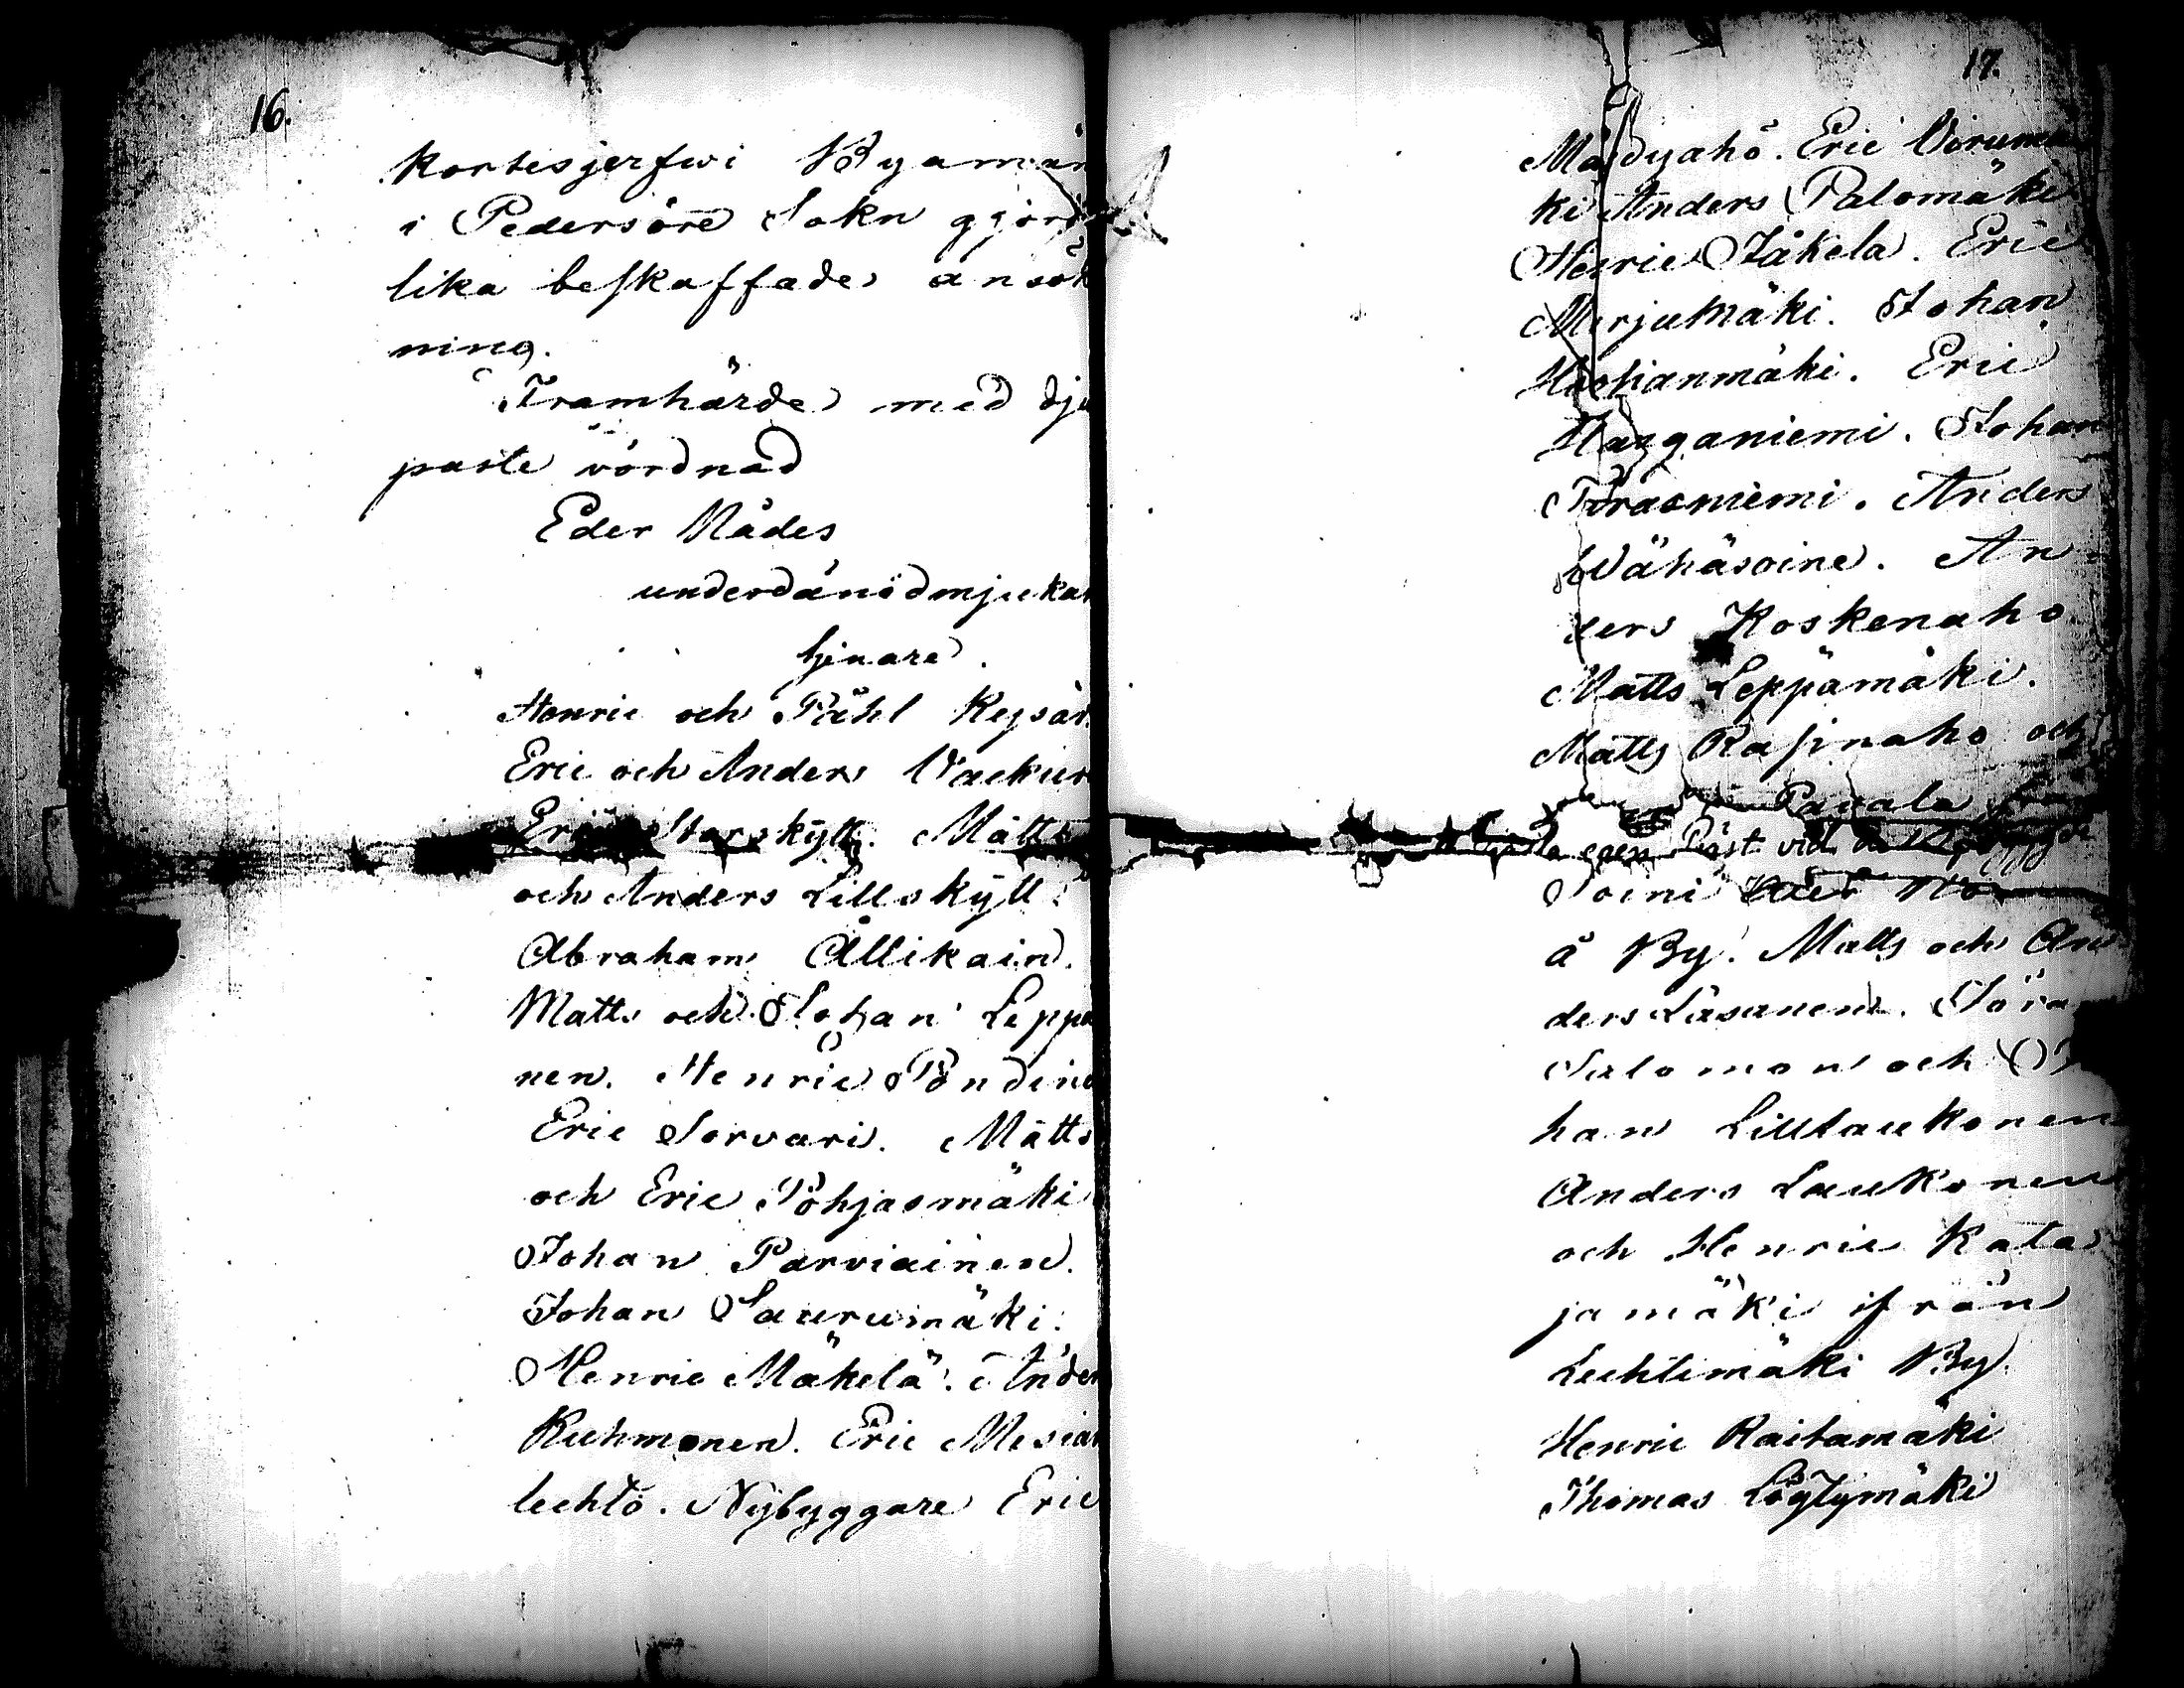 16.
Kortesjerfwi Byamän
i Pedersöre Sokn gjord
lika beskaffade ansök
ning.
Framhärde med dju
paste vördnad
Eder Nådes
underdånödmjukas
tjenare.
Henric och Påhl Keysar
Eric och Anders Vackur
Eric Storskytt. Matts
och Anders Lillskytt
Abraham Allikain.
Matts och Johan Leppä
nen. Henric Pöndine
Eric Sorvari. Matts
och Eric Pohjasmäki
Johan Parviainen.
Johan Saurumäki.
Henric Mäkelä. Ander
Kuhmonen. Eric Mesia
lechto. Nybyggare Eric
17.
Mändyahö. Eric Virumä
ki Anders Palomäki
Henric Jåkela. Eric
Merjumäki. Johan
Hoohianmäki. Eric
Hanganiemi. Johan
Törasniemi. Anders
Wähäsoine. An
ders Koskenaho.
Matts Leppämäki.
Matts Rajinaho och
Pavala
egen Påst vid
Soini
å By. Matts och An
ders Läsanen. Göra
Salomon och Jo
han Lilllaukonen
Anders Laukonen
och Henric Kata
jamäki ifrån
Lechtimäki By.
Henric Raitamäki
Thomas Löytymäki